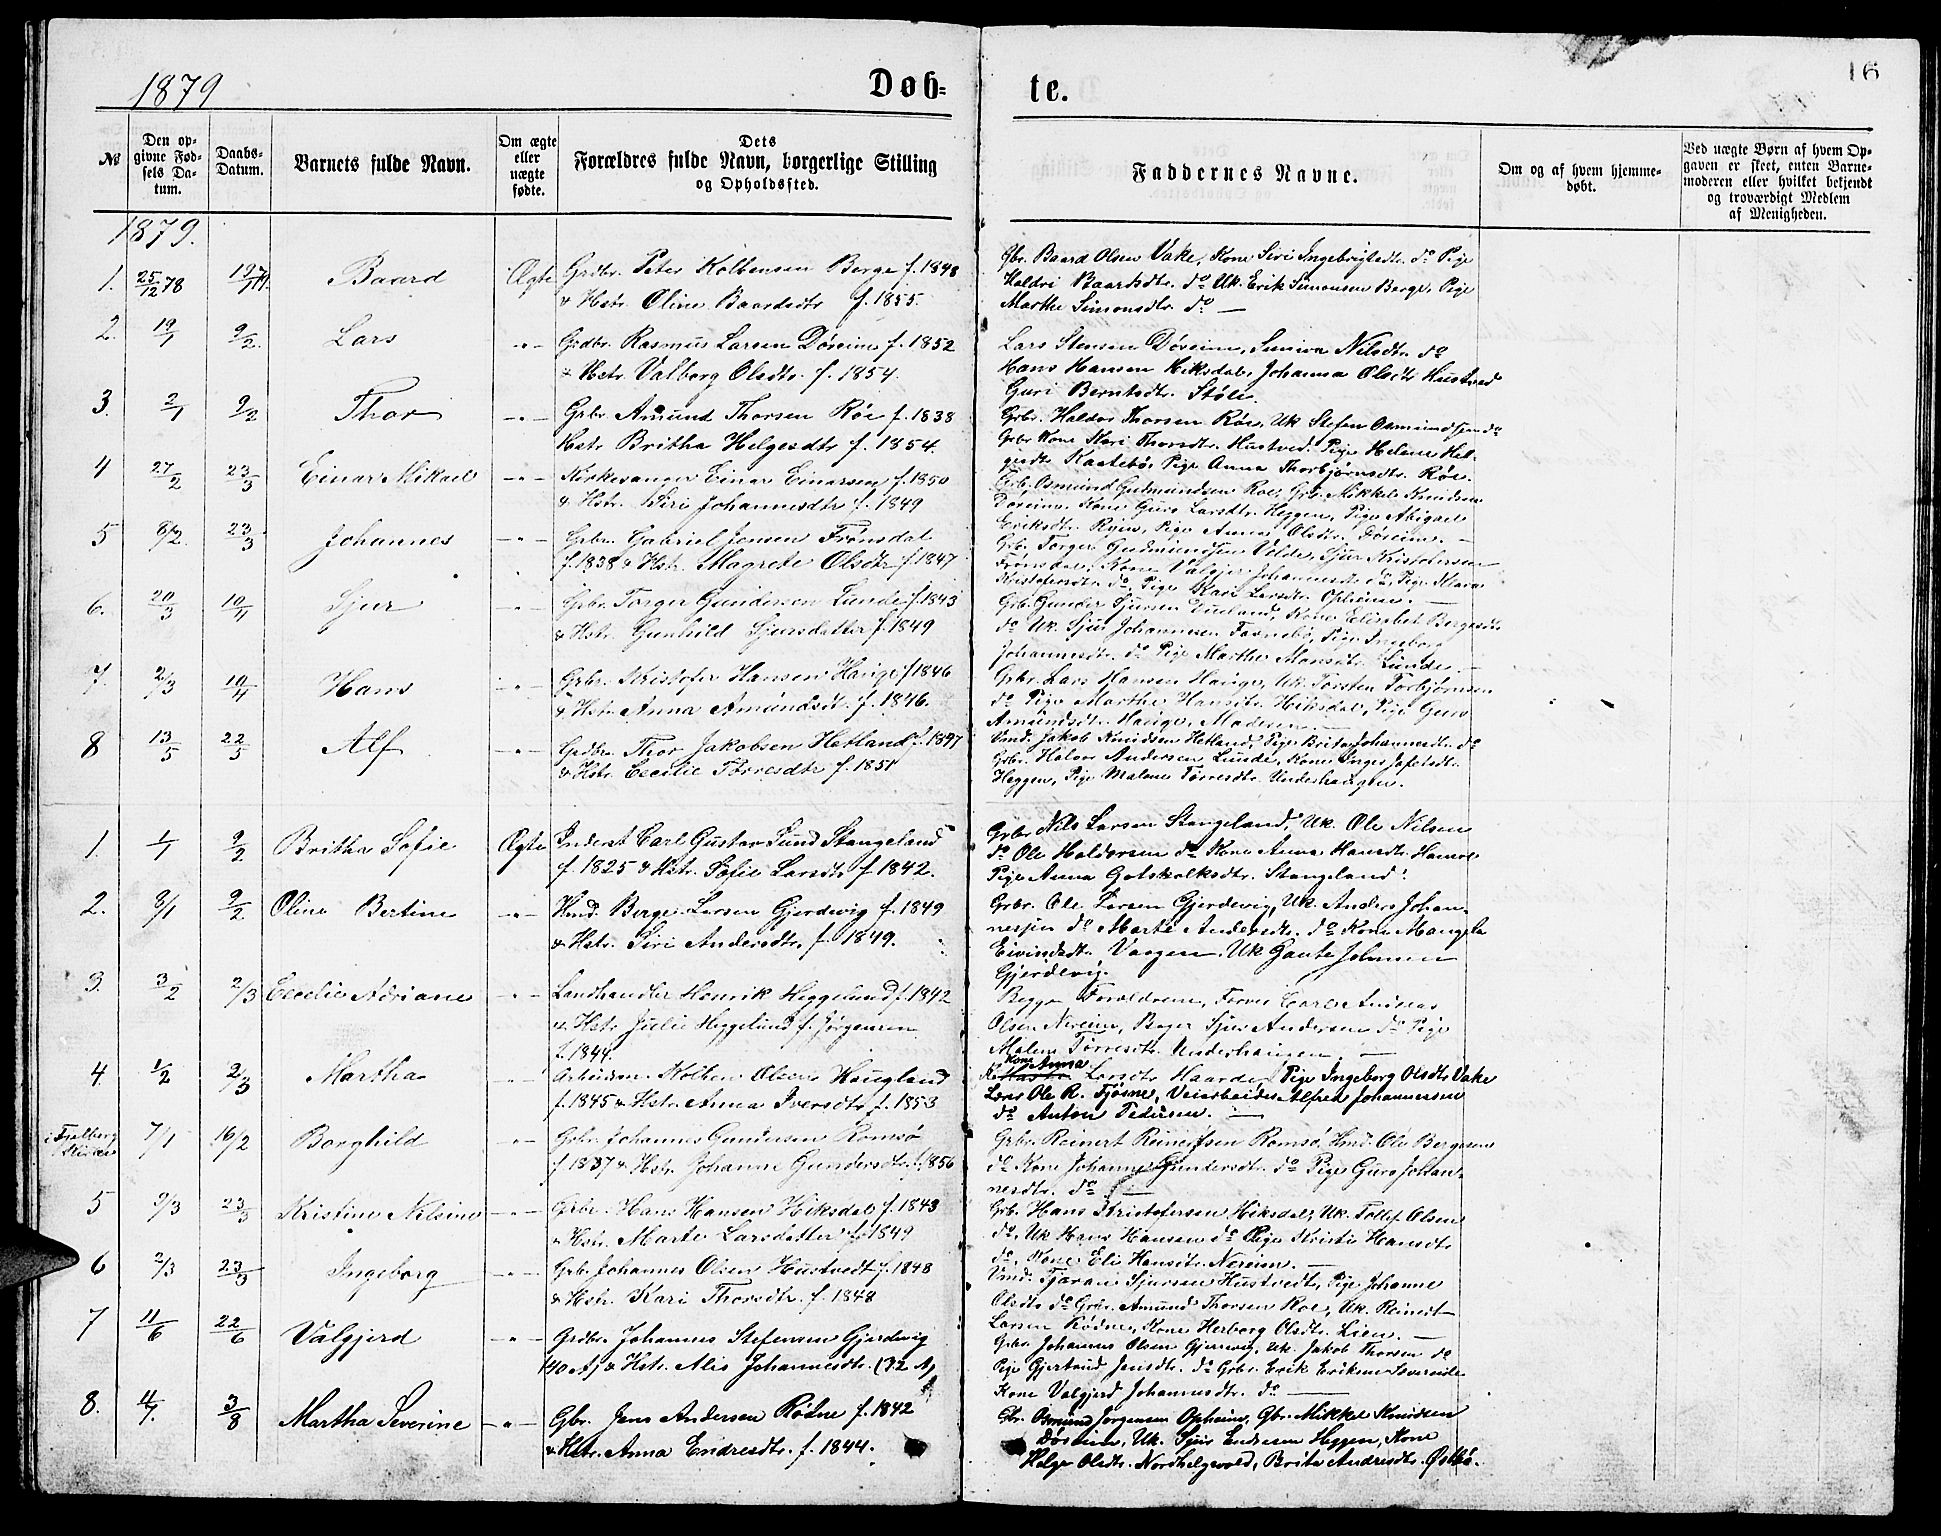 1879
Døb-
te.
16
№
Den op-
givne Fød-
sels Da-
tum.
Daabs-
Datum.
Barnets fulde Navn.
Om ægte
eller
uægte
fødte.
Dets
Forældres fulde Navn, borgerlige Stilling
og Opholdssted.
Faddernes Navne.
Om og af hvem hjemme-
døbt.
Ved uægte Børn af hvem Op-
gaven er skeet, enten Barne-
moderen eller hvilket bekjendt
og troværdigt Medlem
af Menigheden.
1879.
1. 25/12 78 Baard Ægte Grdbr. Peter Kolbensen Berge f. 1848
& Hstr. Oline Baardsdtr f. 1855.
Gbr. Baard Olsen Vake, Kone Siri Ingebrigtsdtr. do Pige
Baardsdtr. do Uk. Erik Simonsen Berge, Pige
Marthe Simonsdtr. do —
2. 19/1 9/2 Lars -"- Grdbr. Rasmus Larsen Døreim f. 1852
& Hstr. Valborg Olsdtr. f. 1854.
Lars Stensen Døreim, Nilsdtr. do
Hans Hansen Hiksdal, Johanna Olsdtr Hustved
Guri Berntsdtr. Støle.
3. 2/1 9/2 Thor -"- Grbr. Amund Thorsen Røe f. 1838
Hstr Britha Helgesdtr f. 1854.
Grbr. Haldor Thorsen Røe, Uk Stefen Osmundsen do
Grbr Kone Kari Thorsdtr. Hustved. Pige Helene Hel-
gesdtr Kaatebø, Pige Anna Thorbjørnsdtr. Røe.
4 27/2 23/3 Einar Mikael -"- Kirkesanger Einar Einarsen f. 1850
& Hstr. Siri Johannesdtr f. 1849
Grb. Osmund Gudmundsen Roe, Grb. Mikkel Knudsen
Døreim, Kone Guro Larsdtr. Heggen, Pige Abigael
Eriksdtr. Pige Anna Olsdtr. Døreim. —
5 8/2. 23/3 Johannes -"- Grbr. Gabriel Jonsen Frønsdal
f. 1838 & Hstr. Magrete Olsdtr f 1847
Grb. Torger Gudmundsen Valde, Sjur Kristofersen
Frønsdal, Kone Valgjer Johannesdtr. do, Pige
Kristofersdtr. do, Pige Kari Larsdtr. Opheim. —
6. 20/3 10/4 Sjur -"- Grbr. Torger Gundersen Lunde f. 1843
& Hstr. Gunhild Sjursdatter f. 1849
Grb. Gunder Sjursen Kone Elisabet Bergesdtr.
do Uk. Sjur Johannesen Pige Ingeborg
Johannesdtr. do Pige Marthe Monsdtr. Lunde. —
7. 2/3 10/4 Hans -"- Grbr. Kristofer Hansen Hauge f 1846
& Hstr. Anna Amundsdt. f. 1846.
Grbr. Lars Hansen Hauge, Uk. Torsten Torbjørnsen
do Pige Marthe Hansdtr. Hiksdal, Pige Guro
Amundsdtr. Hauge, Moderen —
8 13/5 22/5 Alf -"- Grdbr. Thor Jakobsen Hetland f. 1847
& Hstr. Cecilie Tørresdtr f. 1851
Jakob Knudsen Hetland, Pige Brita Johannesdtr. do
Grbr. Halvor Andersen Lunde, Kone Inger
Heggen, Pige Malene Tørresdtr. Underhaugen.
1. 1/1 9/2 Britha Sofie Ægte Inderst Carl Gustav Lund Stangeland
f. 1825 & Hstr. Sofie Larsdtr f. 1842.
Grbr Nils Larsen Stangeland, Uk. Ole Nilsen
do Ole Haldorsen do Kone Anna Hansdtr.
Pige Anna Gotskalksdtr. Stangeland.
2. 8/1 9/2 Oline Bertine -"- Hmd. Berge Larsen Gjerdevig f. 1849
& Hstr. Siri Andersdtr. f. 1849.
Grbr. Ole Larsen Gjerdevig, Uk. Anders Johan-
nessen do Marte Andersdtr. do Kone
Eivindsdt. Uk Gaute Johnsen
Gjerdevig.
3. 3/2 2/3 Cecelie Adriane -"- Landhandler Henrik Heggelund f. 1842
& Hstr. Julie Heggelund f. Jørgensen
f. 1844.
Begge Forældrene, Andreas
Olsen Nereim, Sjur Andersen do Pige
Malene Tørresdtr. Underhaugen. —
4 1/2 2/3 Martha -"- Arbeidsm. Kolben Olsen Haugland
f. 1845 & Hstr. Anna Iversdtr. f. 1853
Kone Anna
Larsdtr Haarde, Pige Ingeborg Olsdtr Vake
Ole R. Tjøsne, Veiarbeider Alfred Johannessen
do Anton Pedersen. —
i Fjelberg
Kirke 7/1 16/2 Borghild -"- Grbr. Johannes Gundersen Romsø
f. 1837 & Hstr. Johanne Gundersdtr. f. 1856
Grbr. Reinert Reinertsen Romsø, Hmd. Ole Bergesen
do Kone Johanne Gundersdtr. do Pige Guro Johan-
nesdtr. do —
5 9/3 23/3 Kristine Nilsine -"- Grbr. Hans Hansen Hiksdal f. 1843
& Hstr. Marte Larsdatter f. 1849
Grb. Hans Kristofersen Hiksdal, Uk. Tollef Olsen
do, Uk Hans Hansen do Pige Kristi Hansdtr
do, Kone Eli Hansdtr. Nereim. —
6 2/3 23/3 Ingeborg -"- Grb. Johannes Olsen Hustvedt f. 1848
& Hstr. Kari Thorsdtr. f. 1848
Tjøran Sjursen Hustvedt, Pige Johanne
Olsdtr do Grbr. Amund Thorsen Roe, Uk. Reinert
Larsen Rødne, Kone Herborg Olsdtr. Lien. —
7 11/6 22/6 Valgjerd -"- Grdbr. Johannes Stefensen Gjerdevig
(40 A) & Hstr. Alis Johannesdtr. (32 A)
Grbr. Johannes Olsen Gjerdevig, Uk. Jakob Thorsen do
Pige Gjertrud Jensdtr. do Grbr. Erik Eriksen
Kone Valgjerd Johannesdtr. do —
8. 4/7 3/8 Martha Severine -"- Gbr. Jens Andersen Rødne f. 1842
& Hstr. Anna Endresdtr. f. 1844.
Gbr. Osmund Jørgensen Opheim, Gbr. Mikkel Knudsen
Døreim, Uk. Sjur Endresen Heggen, Kone
Helga Olsdtr. Nordhelgevold, Brita Andersdtr. Østbø.